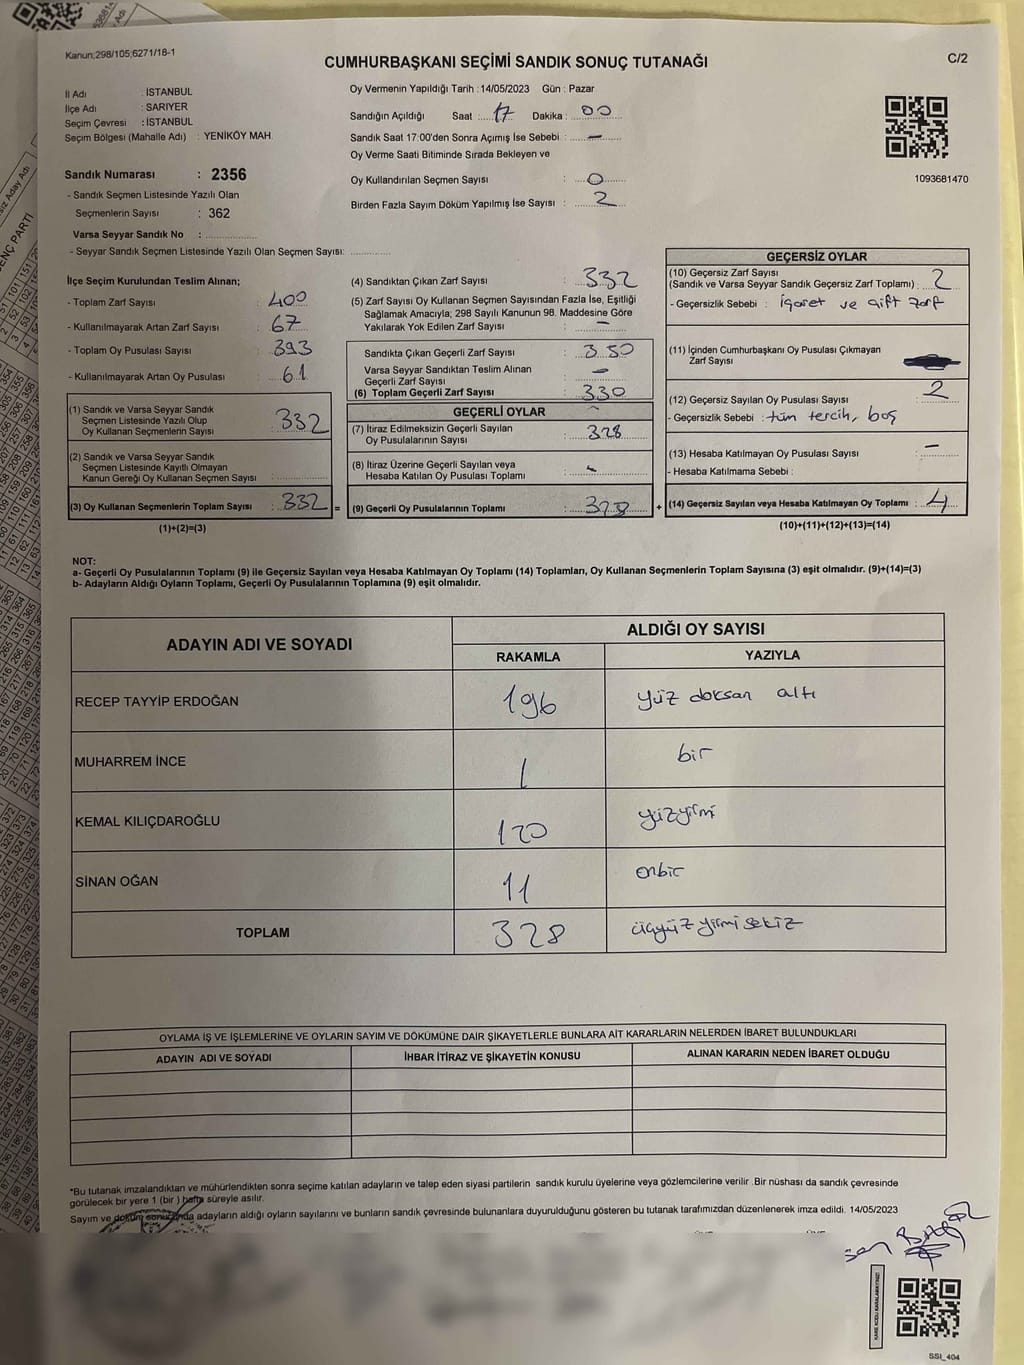 Kanun;298/105;6271/18-1
CUMHURBAŞKANI SEÇİMİ SANDIK SONUÇ TUTANAĞI
C/2
İl Adı : İSTANBUL
İlçe Adı : SARIYER
Seçim Çevresi : İSTANBUL
Seçim Bölgesi (Mahalle Adı) : YENİKÖY MAH.
Sandık Numarası : 2356
- Sandık Seçmen Listesinde Yazılı Olan
Seçmenlerin Sayısı : 362
Varsa Seyyar Sandık No :
- Seyyar Sandık Seçmen Listesinde Yazılı Olan Seçmen Sayısı:
Oy Vermenin Yapıldığı Tarih : 14/05/2023 Gün : Pazar
Sandığın Açıldığı Saat : 17 Dakika : 00
Sandık Saat 17:00'den Sonra Açımış İse Sebebi : —
Oy Verme Saati Bitiminde Sırada Bekleyen ve
Oy Kullandırılan Seçmen Sayısı : 0
Birden Fazla Sayım Döküm Yapılmış İse Sayısı : 2
1093681470
İlçe Seçim Kurulundan Teslim Alınan;
- Toplam Zarf Sayısı : 400
- Kullanılmayarak Artan Zarf Sayısı : 67
- Toplam Oy Pusulası Sayısı : 393
- Kullanılmayarak Artan Oy Pusulası : 61
(1) Sandık ve Varsa Seyyar Sandık
Seçmen Listesinde Yazılı Olup
Oy Kullanan Seçmenlerin Sayısı : 332
(2) Sandık ve Varsa Seyyar Sandık
Seçmen Listesinde Kayıtlı Olmayan
Kanun Gereği Oy Kullanan Seçmen Sayısı :
(3) Oy Kullanan Seçmenlerin Toplam Sayısı : 332 =
(1)+(2)=(3)
(4) Sandıktan Çıkan Zarf Sayısı : 332
(5) Zarf Sayısı Oy Kullanan Seçmen Sayısından Fazla İse, Eşitliği
Sağlamak Amacıyla; 298 Sayılı Kanunun 98. Maddesine Göre
Yakılarak Yok Edilen Zarf Sayısı : —
Sandıkta Çıkan Geçerli Zarf Sayısı : 350
Varsa Seyyar Sandıktan Teslim Alınan
Geçerli Zarf Sayısı : —
(6) Toplam Geçerli Zarf Sayısı : 330
GEÇERLİ OYLAR
(7) İtiraz Edilmeksizin Geçerli Sayılan
Oy Pusulalarının Sayısı : 328
(8) İtiraz Üzerine Geçerli Sayılan veya
Hesaba Katılan Oy Pusulası Toplamı :
(9) Geçerli Oy Pusulalarının Toplamı : 328 +
GEÇERSİZ OYLAR
(10) Geçersiz Zarf Sayısı
(Sandık ve Varsa Seyyar Sandık Geçersiz Zarf Toplamı) : 2
- Geçersizlik Sebebi : İşaret ve çift zarf
(11) İçinden Cumhurbaşkanı Oy Pusulası Çıkmayan
Zarf Sayısı
(12) Geçersiz Sayılan Oy Pusulası Sayısı : 2
- Geçersizlik Sebebi : tüm tercih, boş
(13) Hesaba Katılmayan Oy Pusulası Sayısı : —
- Hesaba Katılmama Sebebi :
(14) Geçersiz Sayılan veya Hesaba Katılmayan Oy Toplamı : 4
(10)+(11)+(12)+(13)=(14)
NOT:
a- Geçerli Oy Pusulalarının Toplamı (9) ile Geçersiz Sayılan veya Hesaba Katılmayan Oy Toplamı (14) Toplamları, Oy Kullanan Seçmenlerin Toplam Sayısına (3) eşit olmalıdır. (9)+(14)=(3)
b- Adayların Aldığı Oyların Toplamı, Geçerli Oy Pusulalarının Toplamına (9) eşit olmalıdır.
ADAYIN ADI VE SOYADI
ALDIĞI OY SAYISI
RAKAMLA YAZIYLA
RECEP TAYYİP ERDOĞAN 196 yüz doksan altı
MUHARREM İNCE 1 bir
KEMAL KILIÇDAROĞLU 120 yüzyirmi
SİNAN OĞAN 11 onbir
TOPLAM 328 üçyüzyirmisekiz
OYLAMA İŞ VE İŞLEMLERİNE VE OYLARIN SAYIM VE DÖKÜMÜNE DAİR ŞİKAYETLERLE BUNLARA AİT KARARLARIN NELERDEN İBARET BULUNDUKLARI
ADAYIN ADI VE SOYADI İHBAR İTİRAZ VE ŞİKAYETİN KONUSU ALINAN KARARIN NEDEN İBARET OLDUĞU
*Bu tutanak imzalandıktan ve mühürlendikten sonra seçime katılan adayların ve talep eden siyasi partilerin sandık kurulu üyelerine veya gözlemcilerine verilir .Bir nüshası da sandık çevresinde
görülecek bir yere 1 (bir ) hafta süreyle asılır.
Sayım ve döküm sonucunda adayların aldığı oyların sayılarını ve bunların sandık çevresinde bulunanlara duyurulduğunu gösteren bu tutanak tarafımızdan düzenlenerek imza edildi. 14/05/2023
KARE KODU KARALAMAYINIZ!
SSI_404